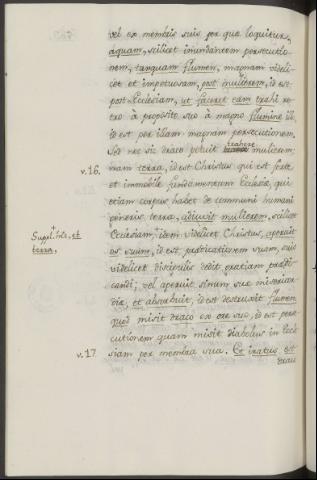 vel ex membris suis per que loquitur,
aquam, scilicet inundantem persecutio-
nem, tanquam flumen, magnam videli-
cet et impetuosam, post mulierem, id est
post Ecclesiam, ut faceret eam trahi re-
tro à proposito suo à magno flumine illo,
id est per illam magnam persecutionem.
Sed nec sic draco potuit trahere mulierem:
v. 16. nam terra, id est Christus qui est forte
et immobile fundamentum Ecclesiæ, qui
etiam corpus habet de communi humani
generis terra, adjuvit mulierem, scilicet
Suppl. inte. et Ecclesiam; idem videlicet Christus, aperuit
terra. os suum, id est predicationem suam, suis
videlicet discipulis dedit gratiam predi-
candi; vel aperuit sinum sue misericor-
die, et absorbuit, id est destruxit flumen
quod misit draco ex ore suo, id est perse-
cutionem quam misit diabolus in Eccle-
v. 17 siam per membra sua. Et iratus est
draco